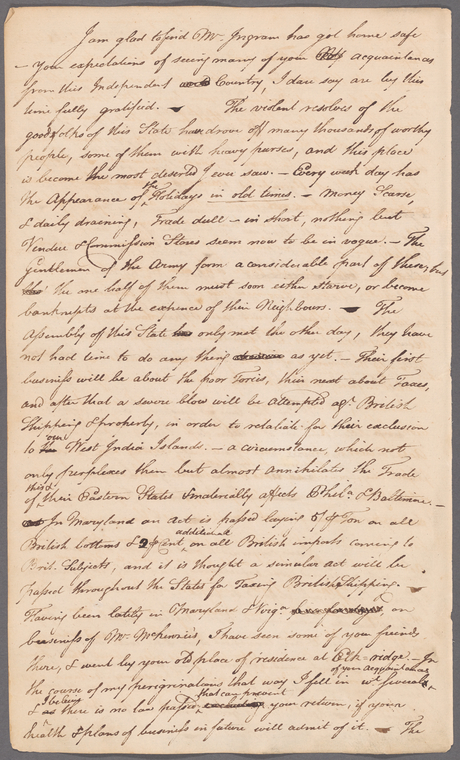 I am glad to find Mr. Ingram has got home safe
— your expectations of seeing many of your acquaintances
from this Independent Country, I dare say are by this
time fully gratified. — The violent resolves of the
good folks of this State have drove off many thousands of worthy
people, some of them with heavy purses, and this place
is become the most deserted I ever saw. — Every week day has
the Appearance of the Holidays in old times. — Money Scarce,
& daily draining, Trade dull — in short, nothing but
Vendue & Commission Stores seem now to be in vogue. — The
Gentlemen of the Army form a considerable part of these, but
the one half of them must soon either starve, or become
bankrupts at the expence of their Neighbours. — The
Assembly of this State only met the other day, they have
not had time to do any thing as yet. — Their first
business will be about the poor Tories, their next about Taxes,
and after that a severe blow will be attempted agt. British
Shipping & property, in order to retaliate for their exclusion
to our West India Islands. — a circumstance, which not
only perplexes them but almost annihilates the Trade
of their Eastern States & materially affects Phila. & Baltimore. —
In Maryland an act is passed laying 5/ Ton on all
British bottoms & 2 Cent additional on all British imports coming to
Brit. Subjects, and it is thought a similar act will be
passed throughout the States for Taxing British Shipping. —
Having been lately in Maryland & Virga. on
business of Mr. McKenzie's, I have seen some of your friends
there, & went by your old place of residence at Elk-ridge. — In
the course of my peregrinations that way I fell in wt. several of your acquaintances
& I believe there is no law passed that can prevent your return, if your
health & plans of business in future will admit of it. — The